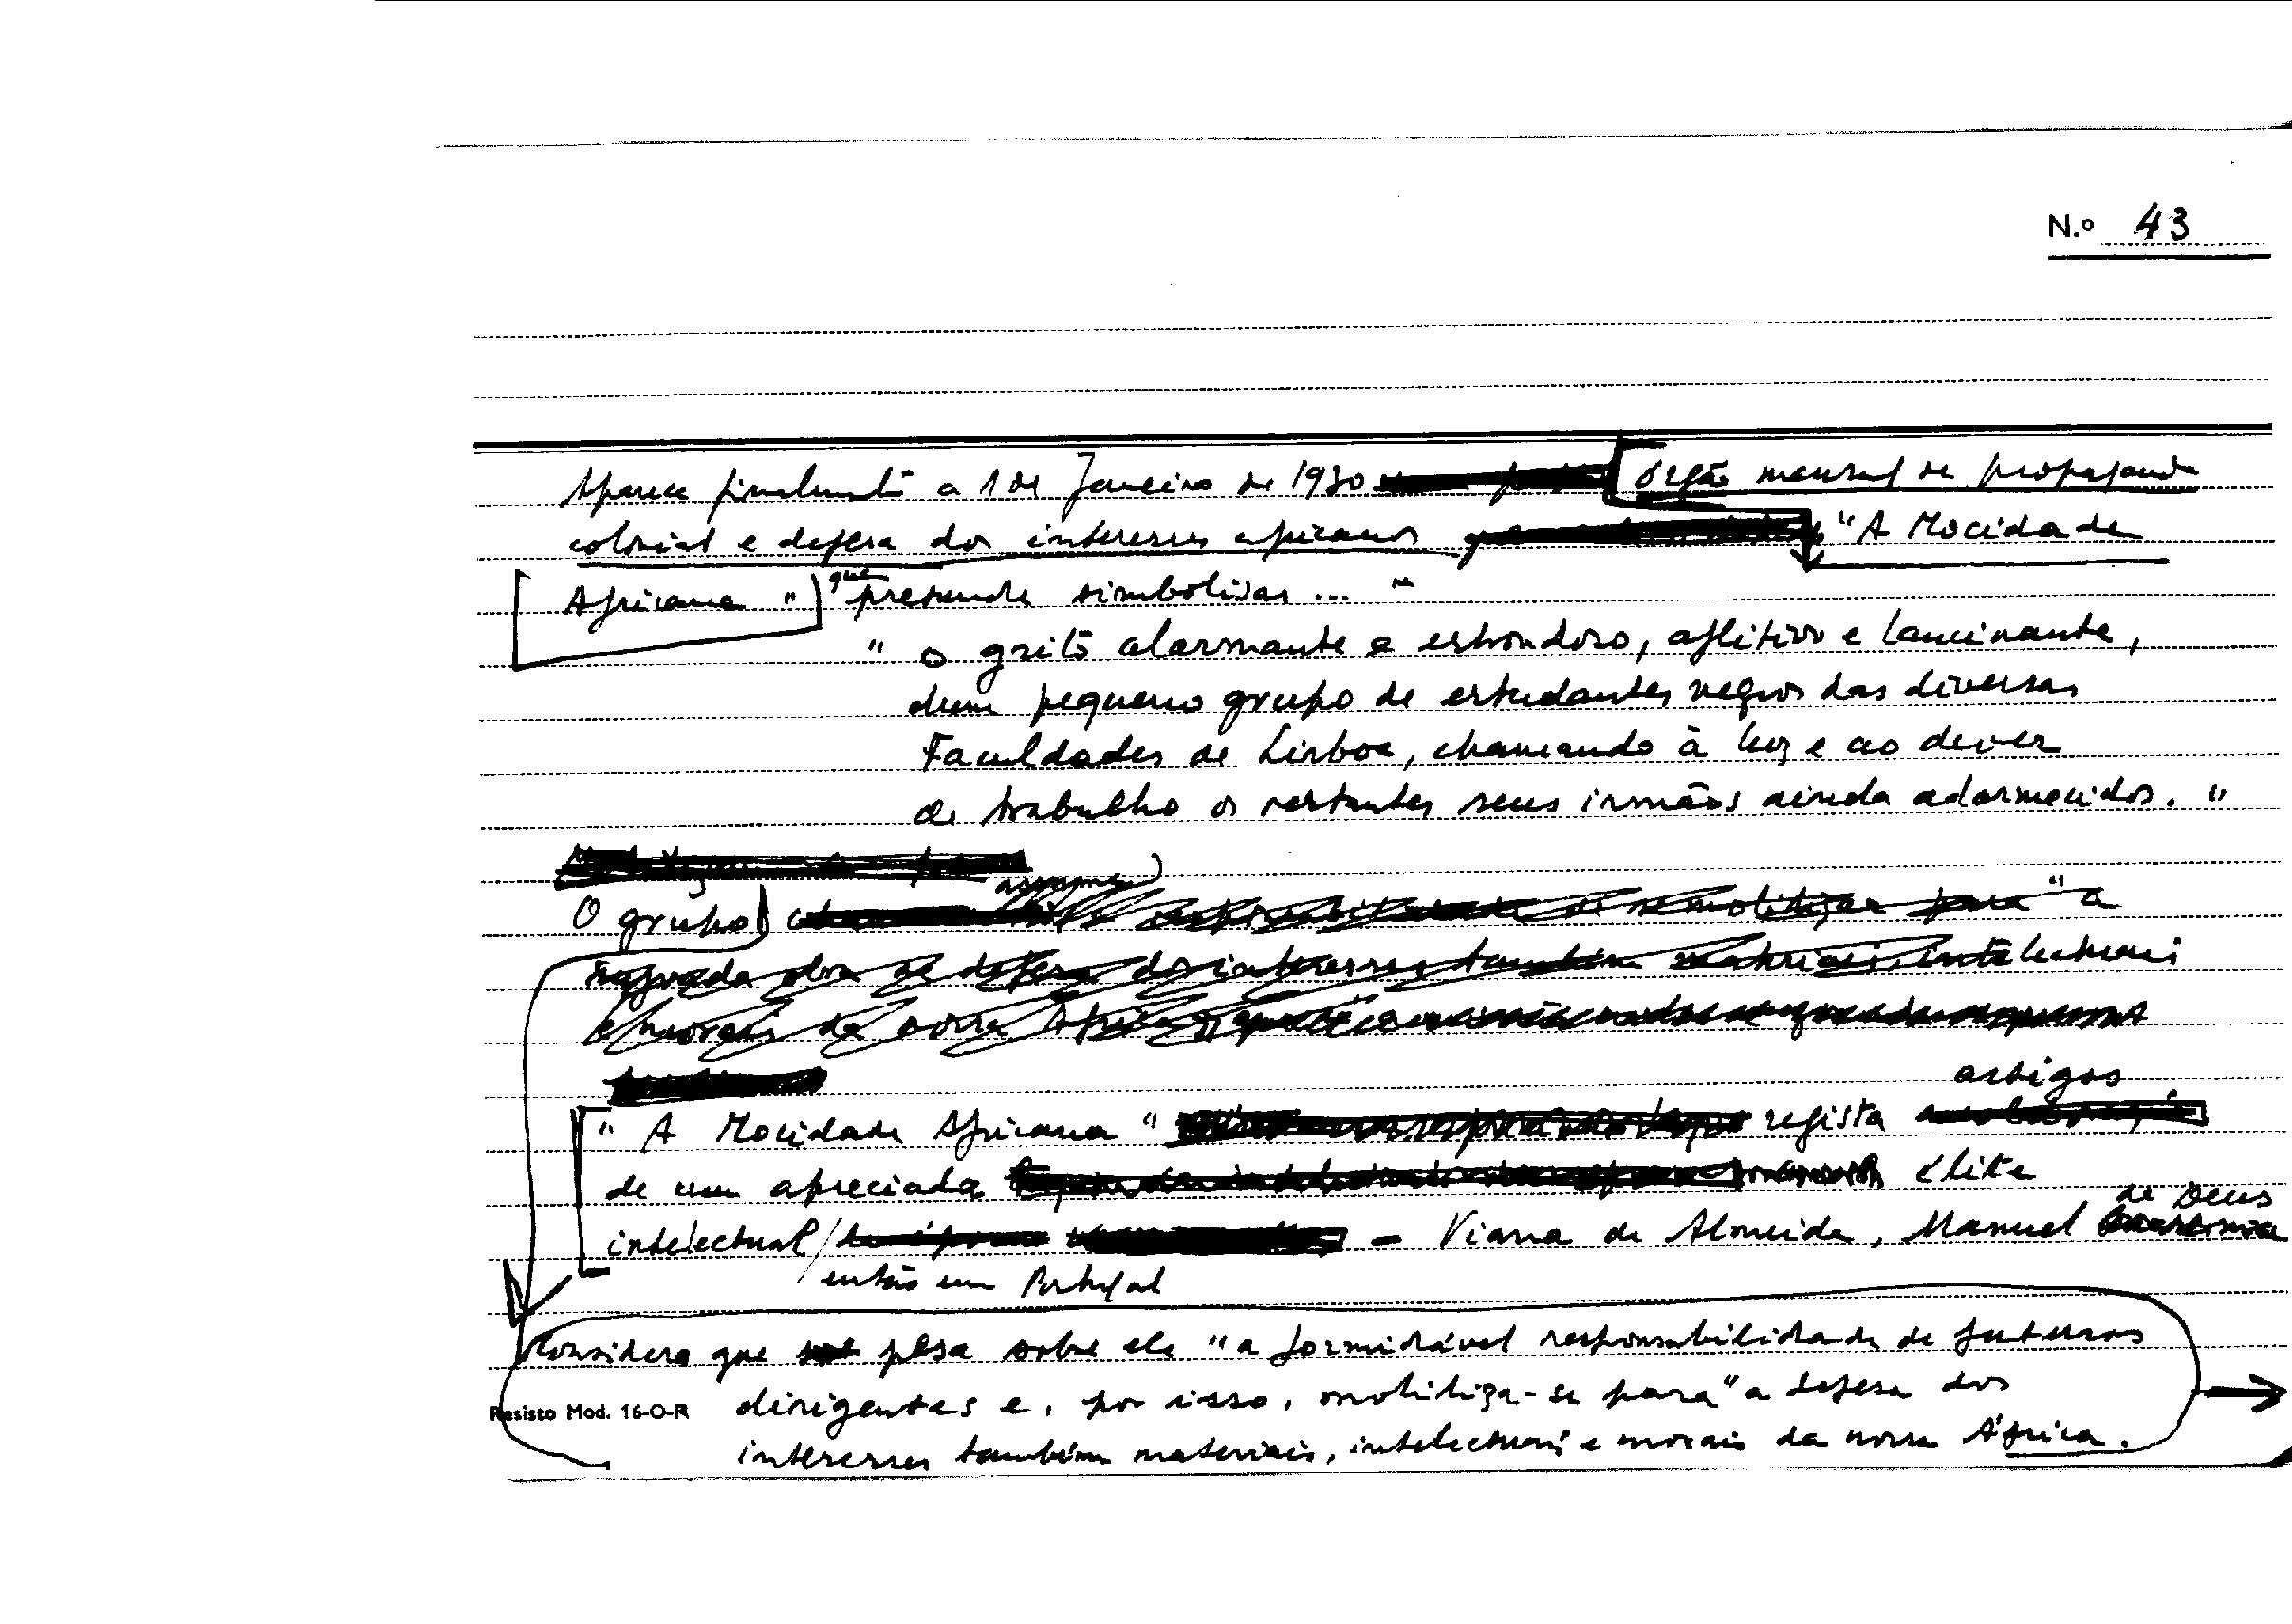 N.o 43
Aparece finalmente a 1 de Janeiro de 1930 órgão mensal de propaganda
colonial e defesa dos interesses africanos "A Mocidade
Africana" que pretende simbolizar... "
" o grito alarmante e estrondoso, aflitivo e lancinante,
dum pequeno grupo de estudantes negros das diversas
Faculdades de Lisboa, chamando à luz e ao dever
de trabalho os restantes seus irmãos ainda adormecidos. "
assume
O grupo responsabilidade de se mobilizar para "a
sagrada obra de defesa dos interesses também materiais, intelectuais
e morais da nossa África
artigos
" A Mocidade Africana " regista
de uma apreciada élite
de Deus
intelectual / - Viana de Almeida, Manuel
então em Portugal
Considera que pesa sobre ele "a formidável responsabilidade de futuros
dirigentes e, por isso, mobiliza-se para "a defesa dos
Resisto Mod. 16-O-R
interesses também materiais, intelectuais e morais da nossa África.